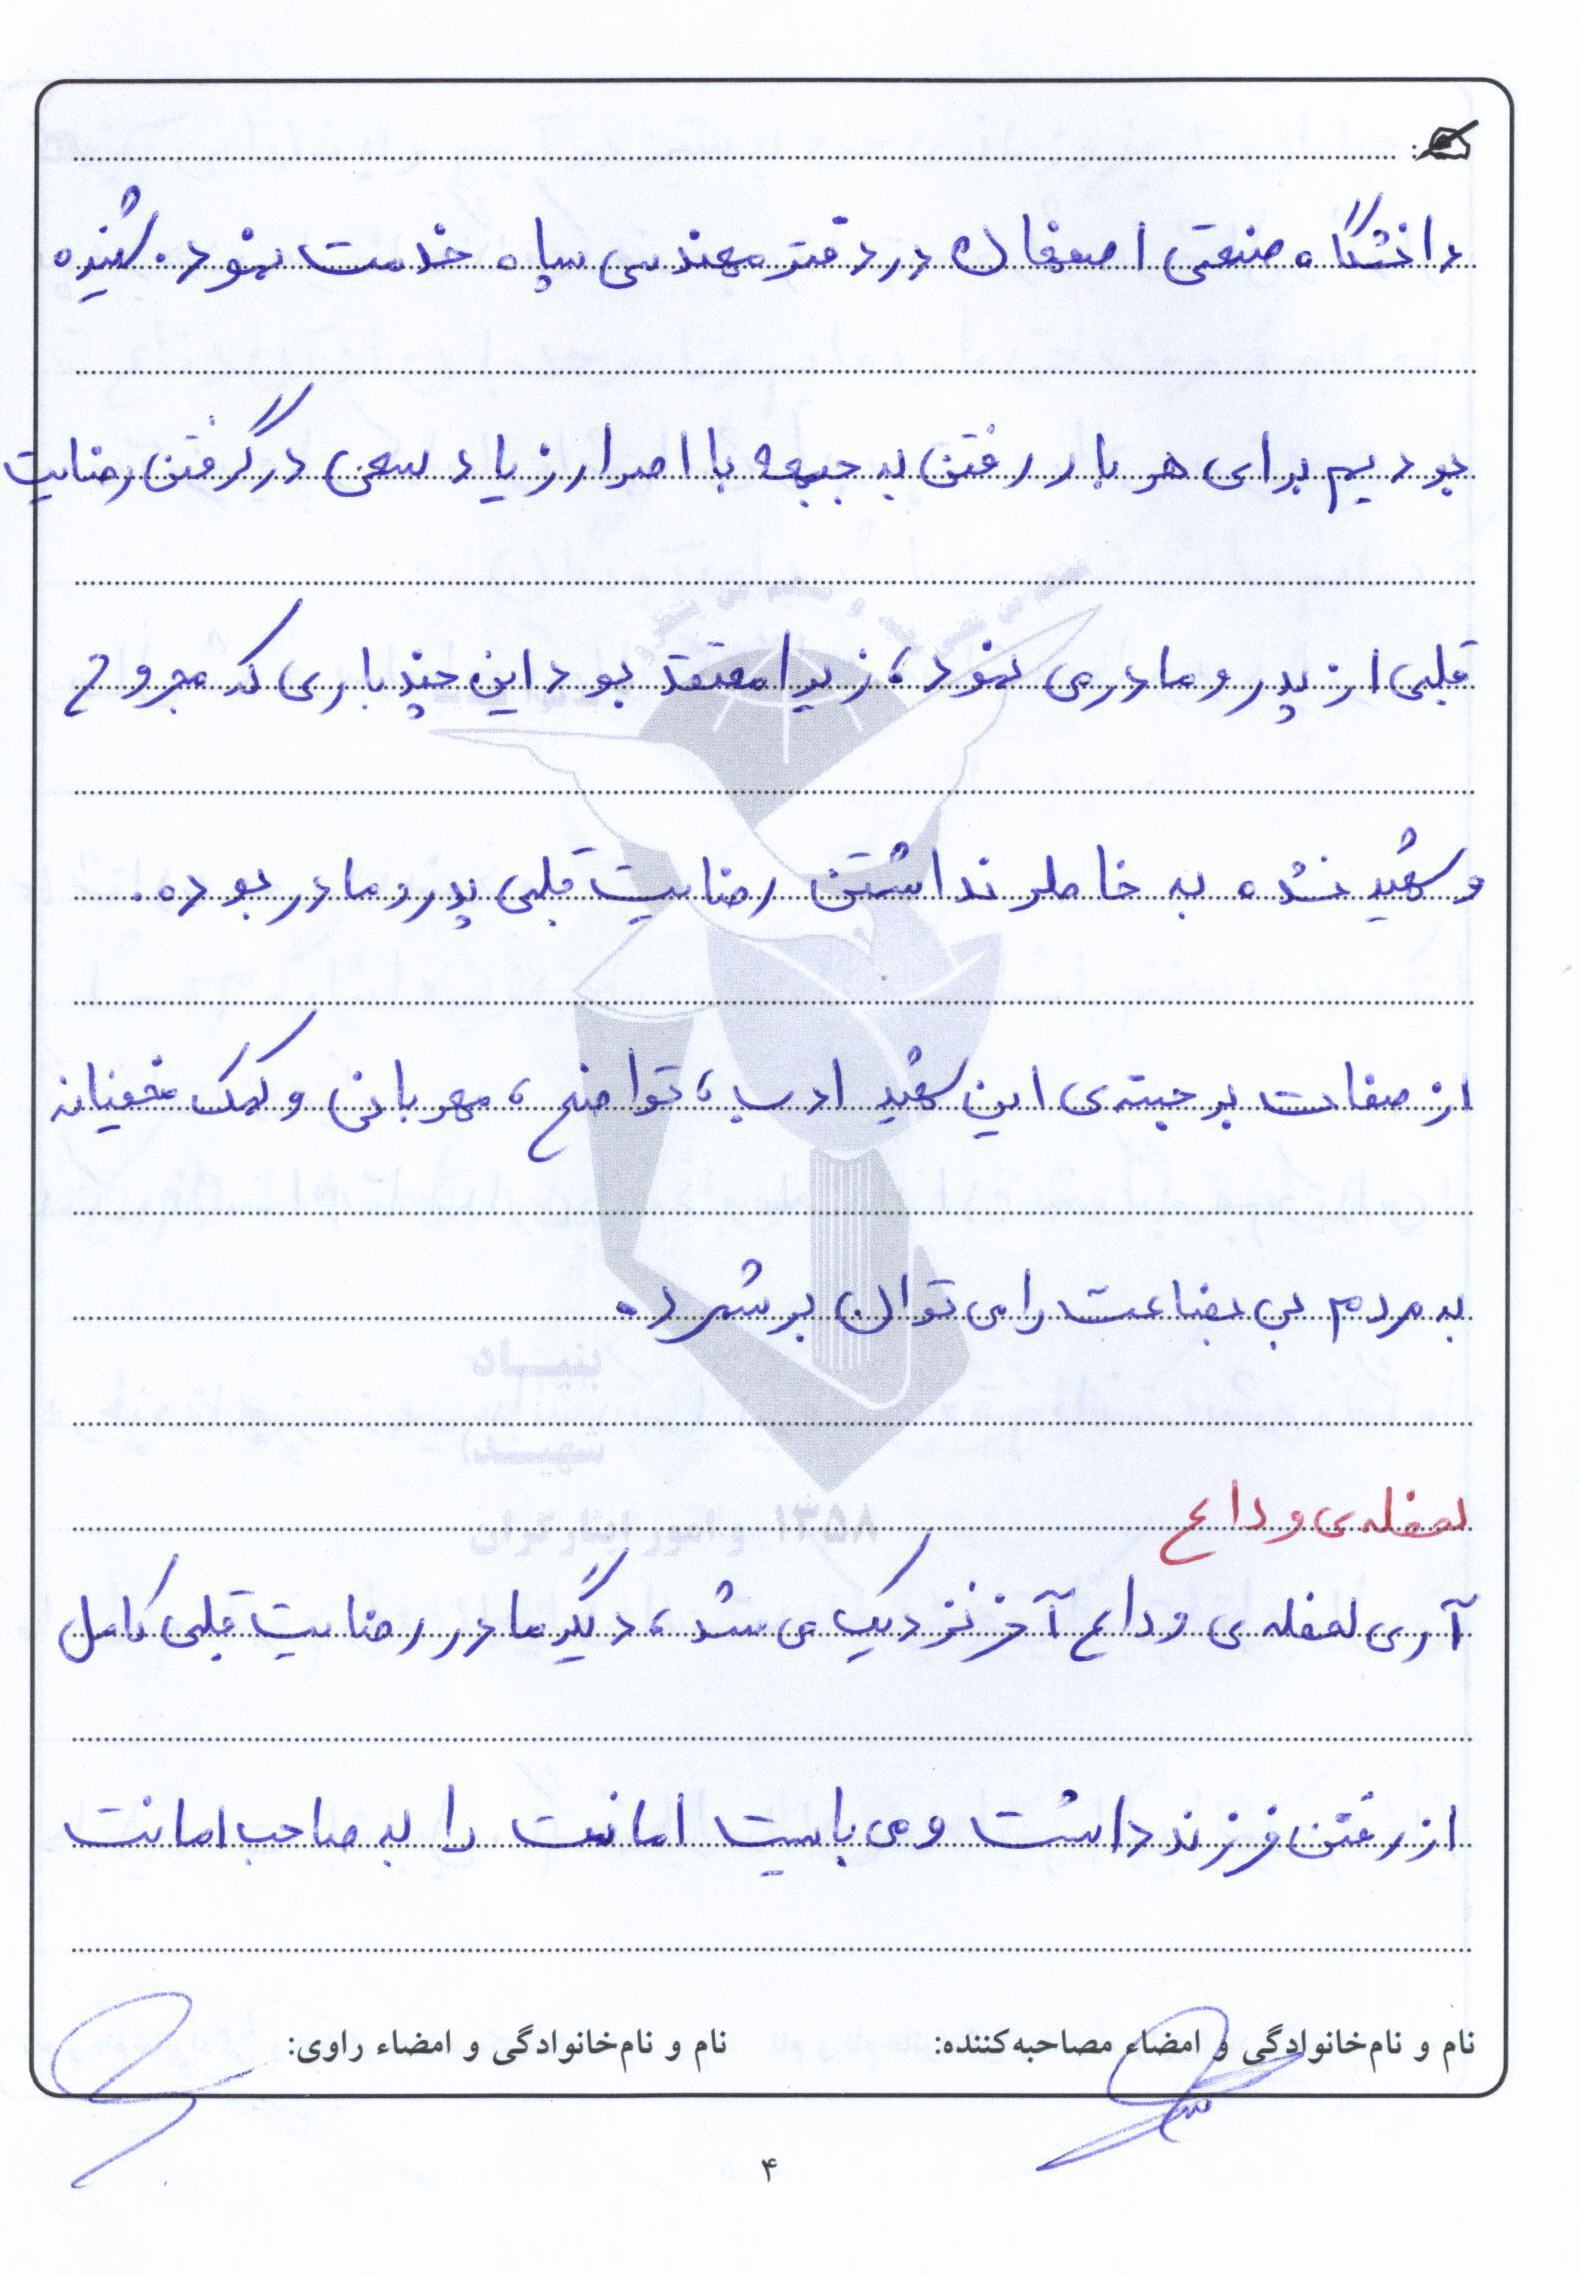 دانشگاه صنعتی اصفهان در دفتر مهندسی سپاه خدمت نمود. شنیده
بودیم برای هر بار رفتن به جبهه با اصرار زیاد سعی در گرفتن رضایت
قلبی از پدر و مادر می نمود، زیرا معتقد بود این چند باری که مجروح
و شهید نشده به خاطر نداشتن رضایت قلبی پدر و مادر بوده.
از صفات برجسته‌ی این شهید ادب، تواضع، مهربانی و کمک مخفیانه
به مردم بی بضاعت را می توان برشمرد.
لحظه‌ی وداع
آری لحظه‌ی وداع آخر نزدیک می شد، دیگر مادر رضایت قلبی کامل
از رفتن فرزند داشت و می بایست امانت را به صاحب امانت
نام و نام‌خانوادگی و امضاء مصاحبه‌کننده:
نام و نام‌خانوادگی و امضاء راوی:
۴
بنیاد
شهید
و امور ایثارگران ۱۳۵۸